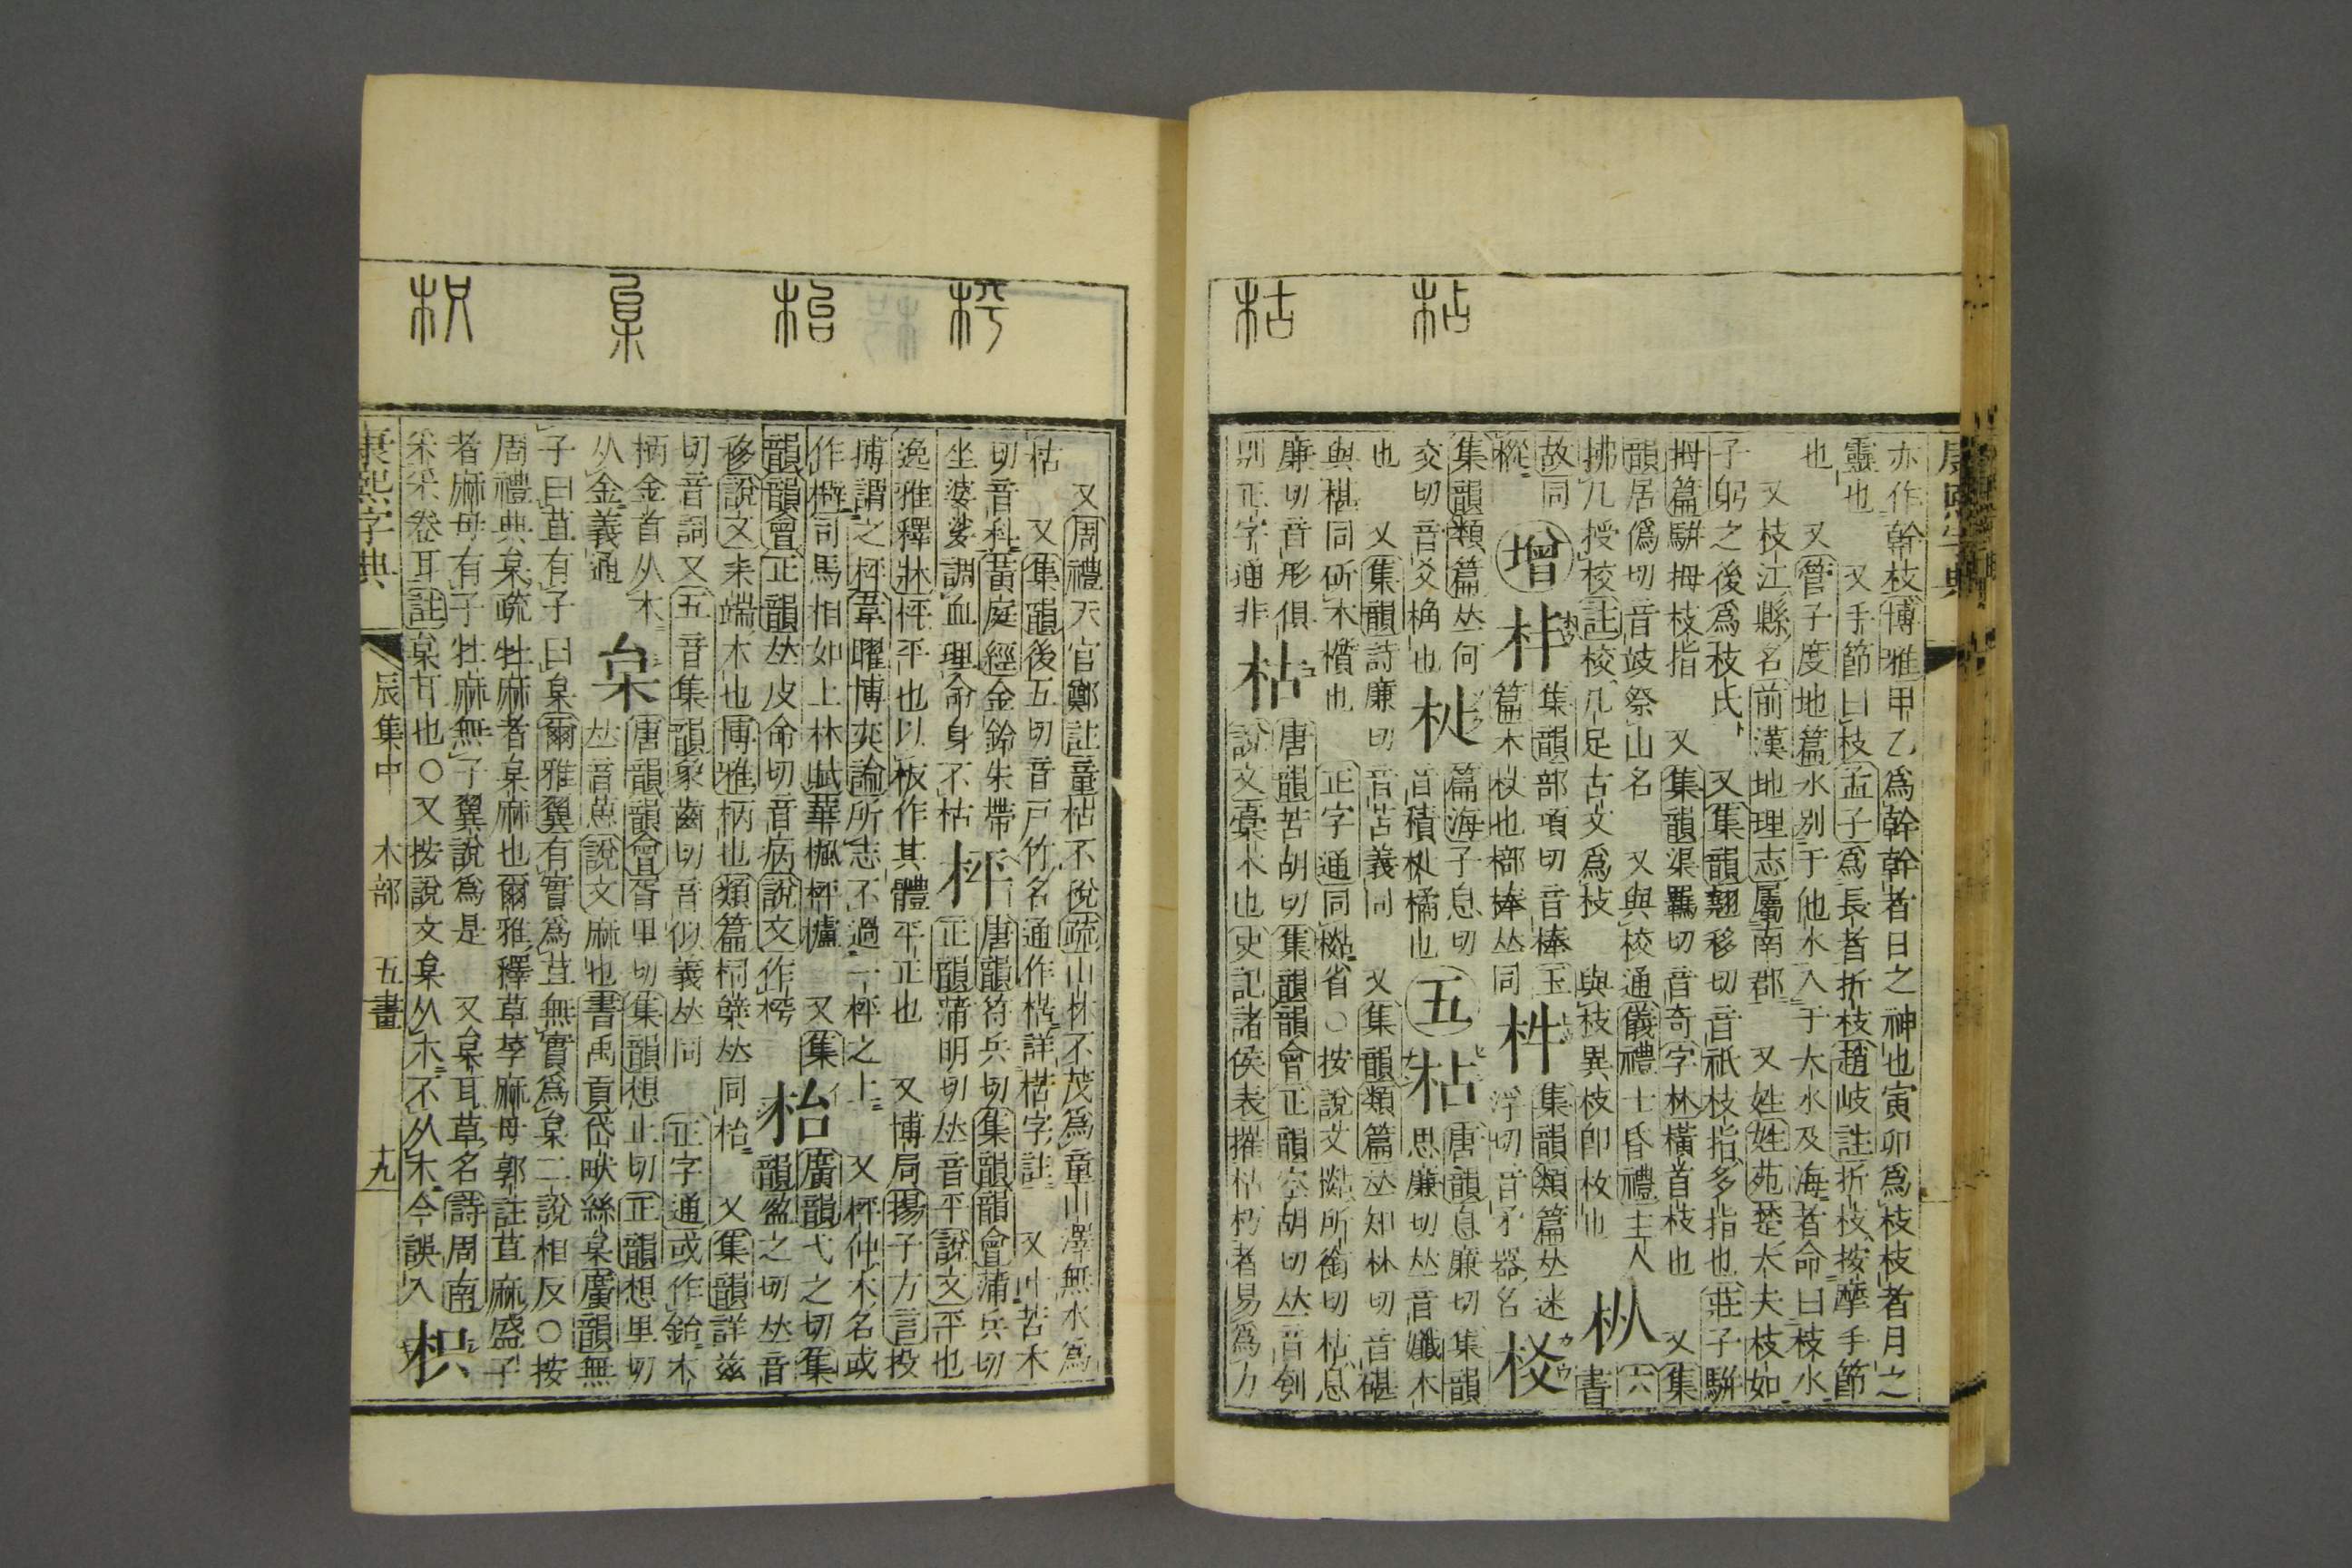 枮
枯
亦作幹枝博雅甲乙爲幹幹者日之神也寅卯爲枝枝者月之
靈也 又手節曰枝孟子爲長者折枝趙岐註折枝按摩手節
也 又管子度地篇水别于他水入于大水及海者命曰枝水
又枝江縣名前漢地理志屬南郡 又姓姓苑楚大夫枝如
子躬之後爲枝氏 又集韻翹移切音祇枝指多指也莊子駢
拇篇駢拇枝指 又集韻渠羈切音奇字林橫首枝也 又集
韻居僞切音㱕祭山名 又與校通儀禮士昏禮主人
拂几授校註校几足古文爲枝 與枝異枝卽枚也 枞
故同 增 𣏾 集韻部項切音棒玉
篇木杖也 棒𠀤同 𣏼 集韻類篇𠀤迷
浮切音矛器名 𣏺
集韻類篇𠀤何
交切音爻桷也 𣏌 篇海子息切
音積 橘也 五 枮 唐韻息廉切集韻
思廉切𠀤音孅木
也 又集韻詩廉切音苫義同 又集韻類篇𠀤知林切音碪
與椹同斫木櫍也 正字通同 省○按說文 所銜切枮息
廉切音形俱
别正字通非 枯 唐韻苦胡切集韻韻會正韻空胡切𠀤音刳
說文槀木也史記諸侯表摧枯朽者易爲力
枰
枱
枲
枳
又周禮天官鄭註童枯不稅疏山林不茂爲童川澤無水爲
枯 又集韻後五切音戸竹名通作楛詳楛字註 又叶苦禾
切音科黃庭經金鈴朱帶
坐婆娑調血理命身不枯 枰 唐韻符兵切集韻韻會蒲兵切
正韻蒲明切𠀤音平說文平也
逸雅釋牀枰平也以板作其體平正也 又博局揚子方言投
博謂之枰韋曜博奕論所志不過一枰之上 又枰仲木名或
作 司馬相如上林賦華楓枰櫨 又集
韻韻會正韻𠀤皮命切音病說文作枰 枱 廣韻弋之切集
韻盈之切𠀤音
移說文耒耑木也博雅柄也類篇 𠀤同枱 又集韻詳兹
切音詞又五音集韻象齒切音似義𠀤同 正字通或作鈶木
柄金首从木
从金義通 枲 唐韻韻會胥里切集韻想止切正韻想里切
𠀤音葸說文麻也書禹貢岱畎絲枲廣韻無
子曰苴有子曰枲爾雅翼有實爲苴無實爲枲二說相反○按
周禮典枲疏牡麻者枲麻也爾雅釋草莩麻母郭註苴麻盛子
者麻母有子牡麻無子翼說爲是 又枲耳草名詩周南
采采卷耳註枲耳也○又按說文枲从𣎳不从木今誤入 枳
康熙字典 辰集中 木部 五畫 十九